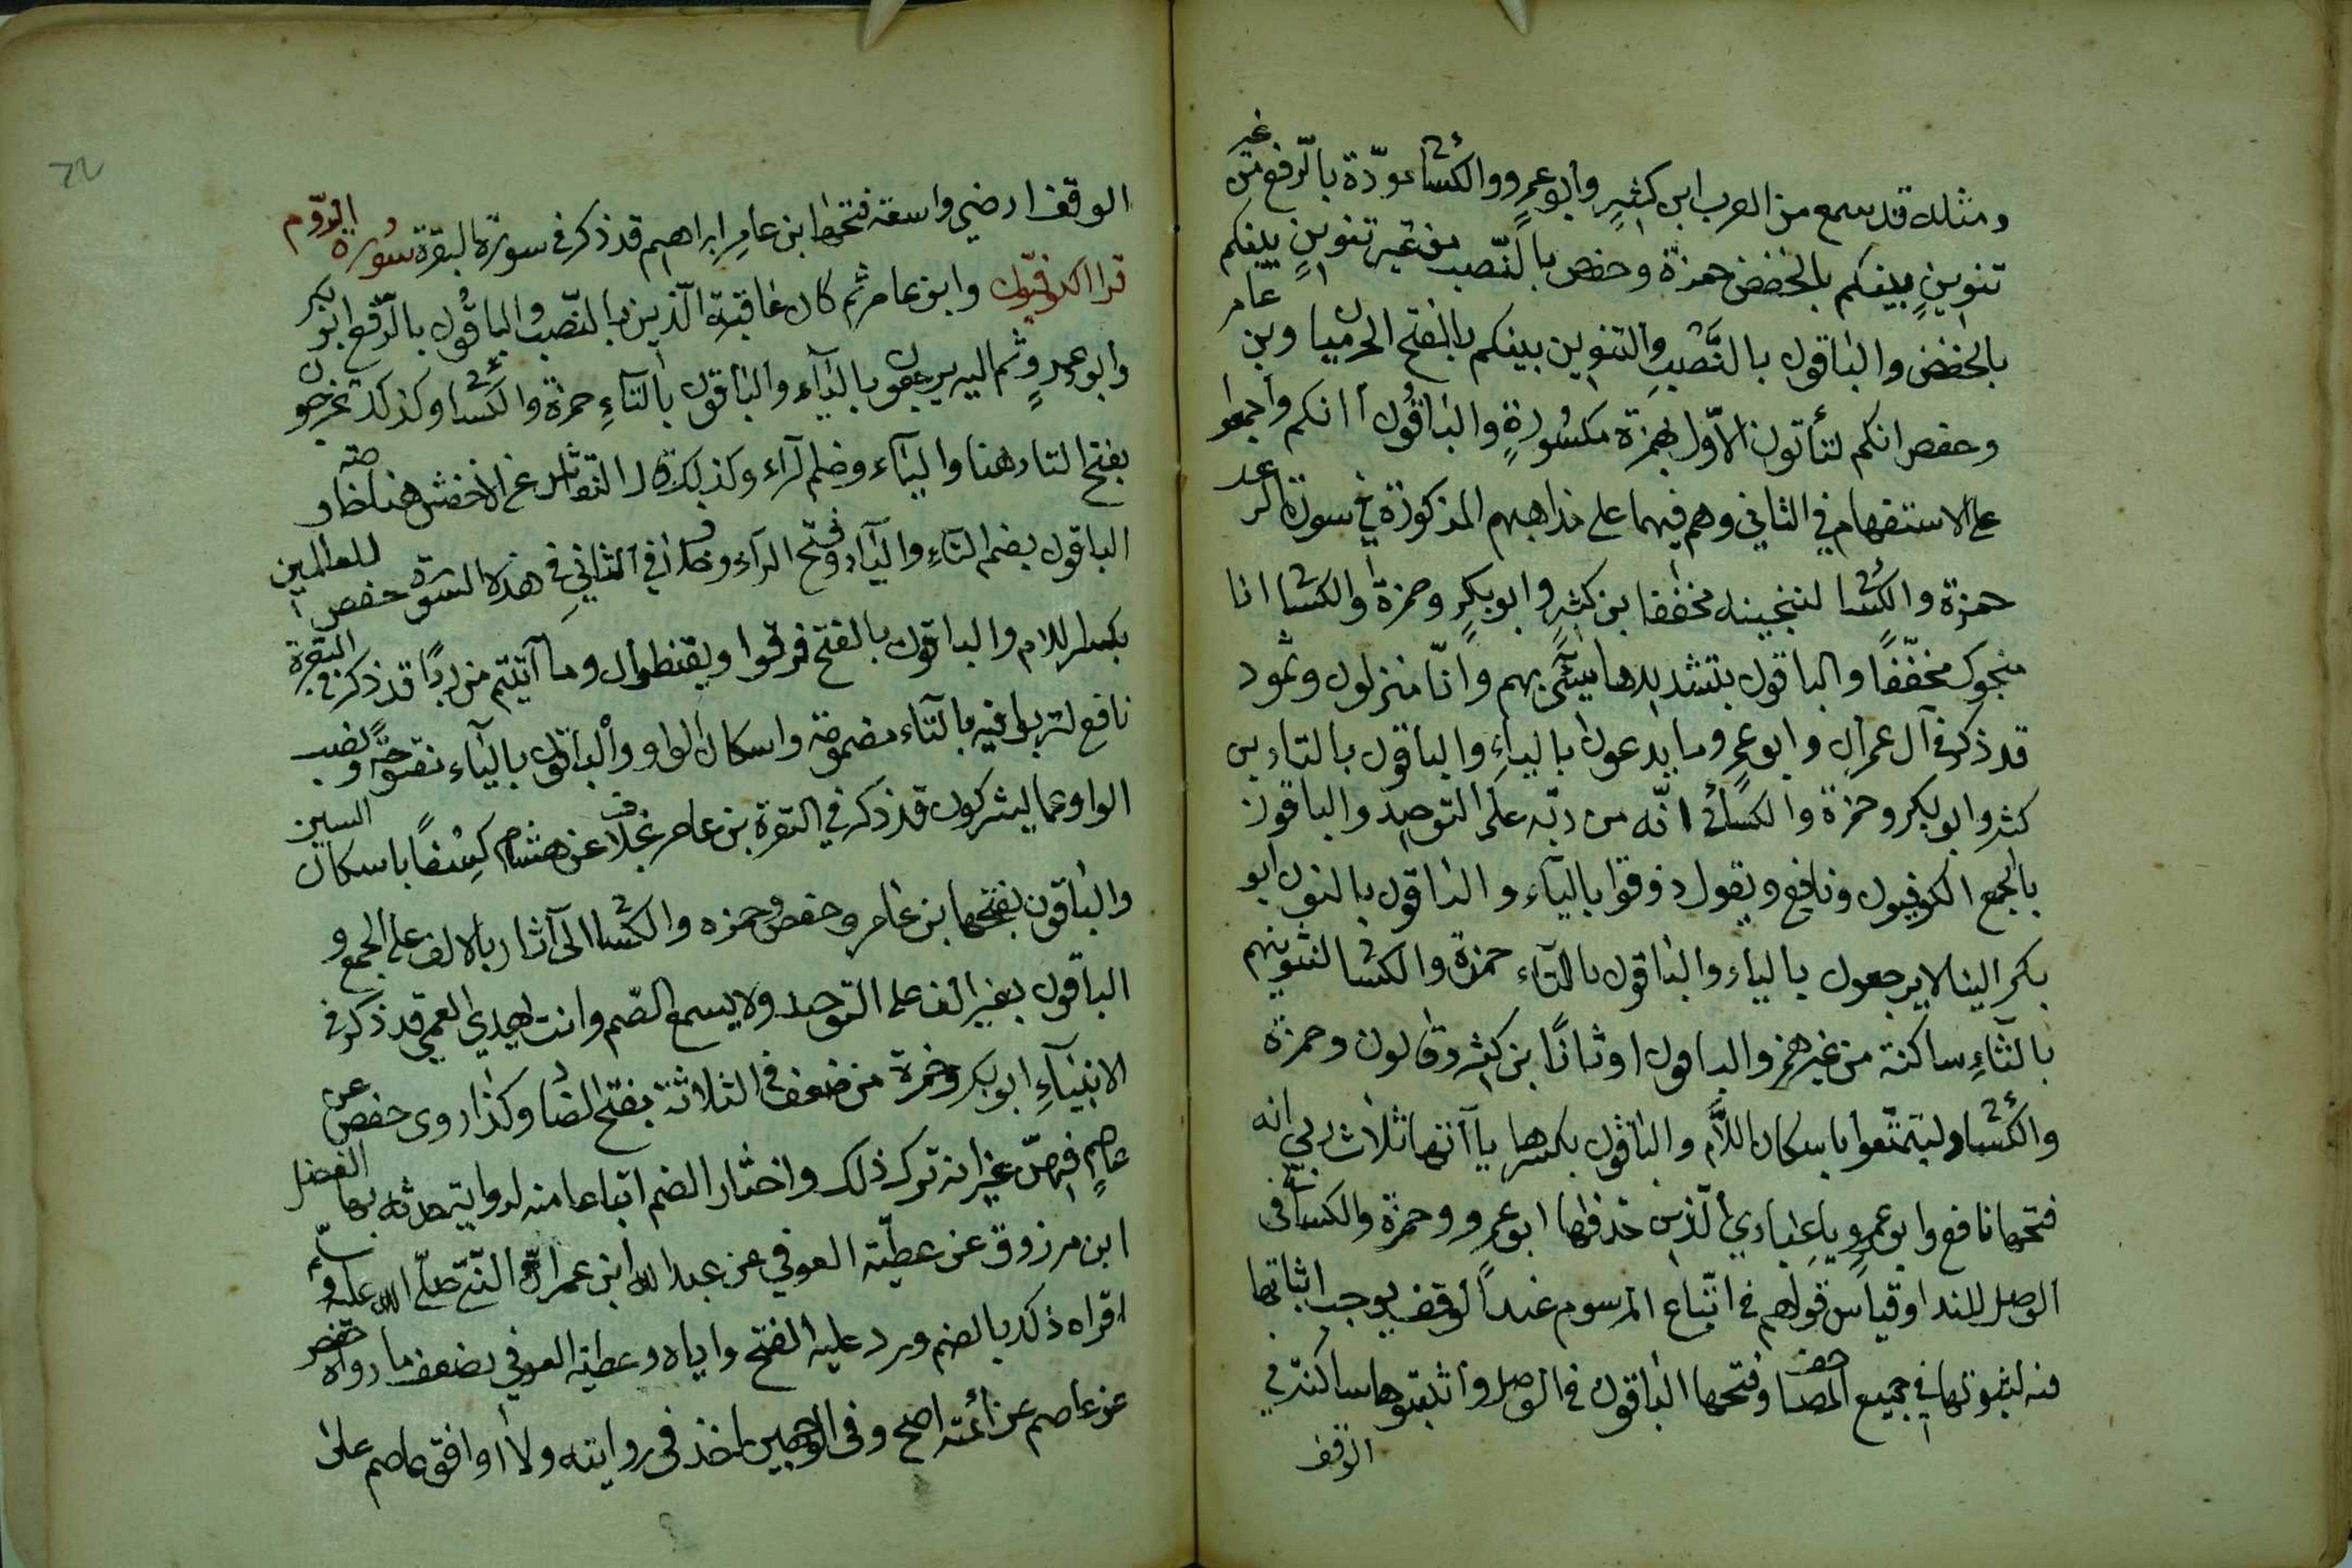 ومثله قد سمع من العرب ابن كثيرٍ وأبو عمرٍو والكسائي مودّة بالرّفع من غير
تنوينٍ بينكم بالخفض حمزة وحفص بالنّصب من غير تنوينٍ بينكم
بالخفض والباقون بالنَّصبِ والتنوين بينكم بالفتح الحرميان وبن عامر
وحفص انكم لتأتون الاوّل بهمزة مكسُورةٍ والباقُون أانكم واجمعوا
على الاستفهام في الثاني وهم فيهما على مذاهبهم المذكورة في سورة الرعد
حمزة والكسائي لننجينه مخففا بن كثيرٍ وابو بكرٍ وحمزة والكسائي انا
منجوك مخفّفًا والباقون بتشديدها سيئَ بهم وانّا منزلون وثمود
قد ذكر في آل عمران وابو عمرٍو ما يدعون بالياءِ والباقون بالتاء بن
كثير وابو بكر وحمزة والكسائي انّه من ربّه على التوحيد والباقون
بالجمع الكوفيون ونافع ويقول ذوقوا بالياء والباقون بالنون ابو
بكر الينا لا يرجعون بالياء والباقون بالتاء حمزة والكسائي لنثوينهم
بالثاءِ ساكنة من غير همز والباقون اوثانًا بن كثير وقالون وحمزة
والكسائي وليتمتّعوا باسكان اللّام والباقون بكسرها يا آتها ثلاث ربي انه
فتحها نافع وابو عمرٍو يا عبادي الّذين حذفها ابو عمرو وحمزة والكسائي في
الوصل للندا وقياس قولهم في اتّباع المرسوم عند الوقف يوجب اثباتها
فيه لثبوتها في جميع المصاحف وفتحها الباقون في الوصل واثبتوها ساكنة في
الوقف
الوقف ارضي واسعة فتحها ابن عامرِ ابراهيم قد ذكر في سورة البقرة سُورة الرّوم
قرا الكوفيّون وابن عامر ثم كان عاقبة الّذين بالنّصب والباقُون بالرّفع ابو بكر
وأبو عمرٍو ثم اليه يرجعون بالياء والباقون بالتاءِ حمزة والكسائي وكذلك تخرجون
بفتح التاء هنا والياء وضم الراء وكذلك قال النقاش عن الاخفش هنا خاصّة و
الباقون بضم التاءِ والياء وفتح الراء ولا خلاف في الثاني في هذه السورة حفص للعالمين
بكسر اللام والباقون بالفتح فرقوا ويقنطون وما آتيتم من ربًا قد ذكر في البقرة
نافع لتربوا فيه بالتاء مضمومة واسكان الواو والباقون بالياء مفتوحة ونصب
الواو عما يشركون قد ذكر في البقرة بن عامر بخلاف عن هشام كِسْفًا باسكان السين
والباقون بفتحها بن عامر وحفص وحمزه والكسائي الى آثار بالالف على الجمع و
الباقون بغير الف على التوحيد ولا يسمع الصّم وانت تهدي العمي قد ذكر في
الانبيآءِ ابو بكر وحمزة من ضعف في الثلاثة بفتح الضاد وكذا روى حفص عن
عاصمٍ فيهنّ غير انه ترك ذلك واختار الضم اتباعا منه لرواية حدثه بها الفضل
ابن مرزوق عن عطيّة العوفي عن عبد الله ابن عمر انّ النّبيّ صلّى الله عليه وسلّم
اقراه ذلك بالضم ورد عليه الفتح واياه وعطية العوفي يضعف ما رواه حفص
عن عاصم عن ائمته اصح وفي الوجهين اخذ في روايته ولا اوافق عاصم على